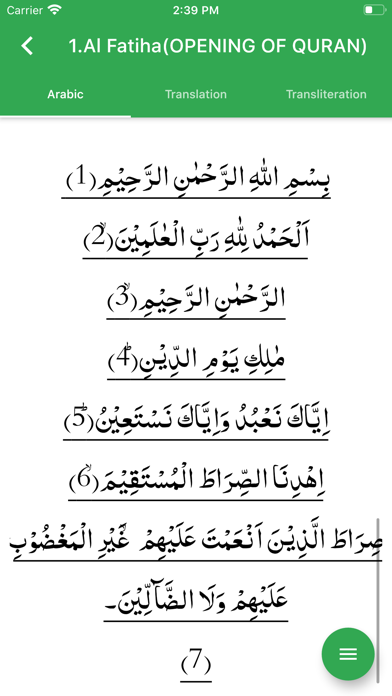 Carrier 2:39 PM
1.Al Fatiha(OPENING OF QURAN)
Arabic Translation Transliteration
بِسْمِ اللّٰهِ الرَّحْمٰنِ الرَّحِيْمِ(1)
اَلْحَمْدُ لِلّٰهِ رَبِّ الْعٰلَمِيْنَۙ(2)
الرَّحْمٰنِ الرَّحِيْمِۙ(3)
مٰلِكِ يَوْمِ الدِّيْنِؕ(4)
اِيَّاكَ نَعْبُدُ وَاِيَّاكَ نَسْتَعِيْنُؕ(5)
اِهْدِنَا الصِّرَاطَ الْمُسْتَقِيْمَۙ(6)
صِرَاطَ الَّذِيْنَ اَنْعَمْتَ عَلَيْهِمْ غَيْرِ الْمَغْضُوْبِ
عَلَيْهِمْ وَلَا الضَّآلِّيْنَ۔
(7)